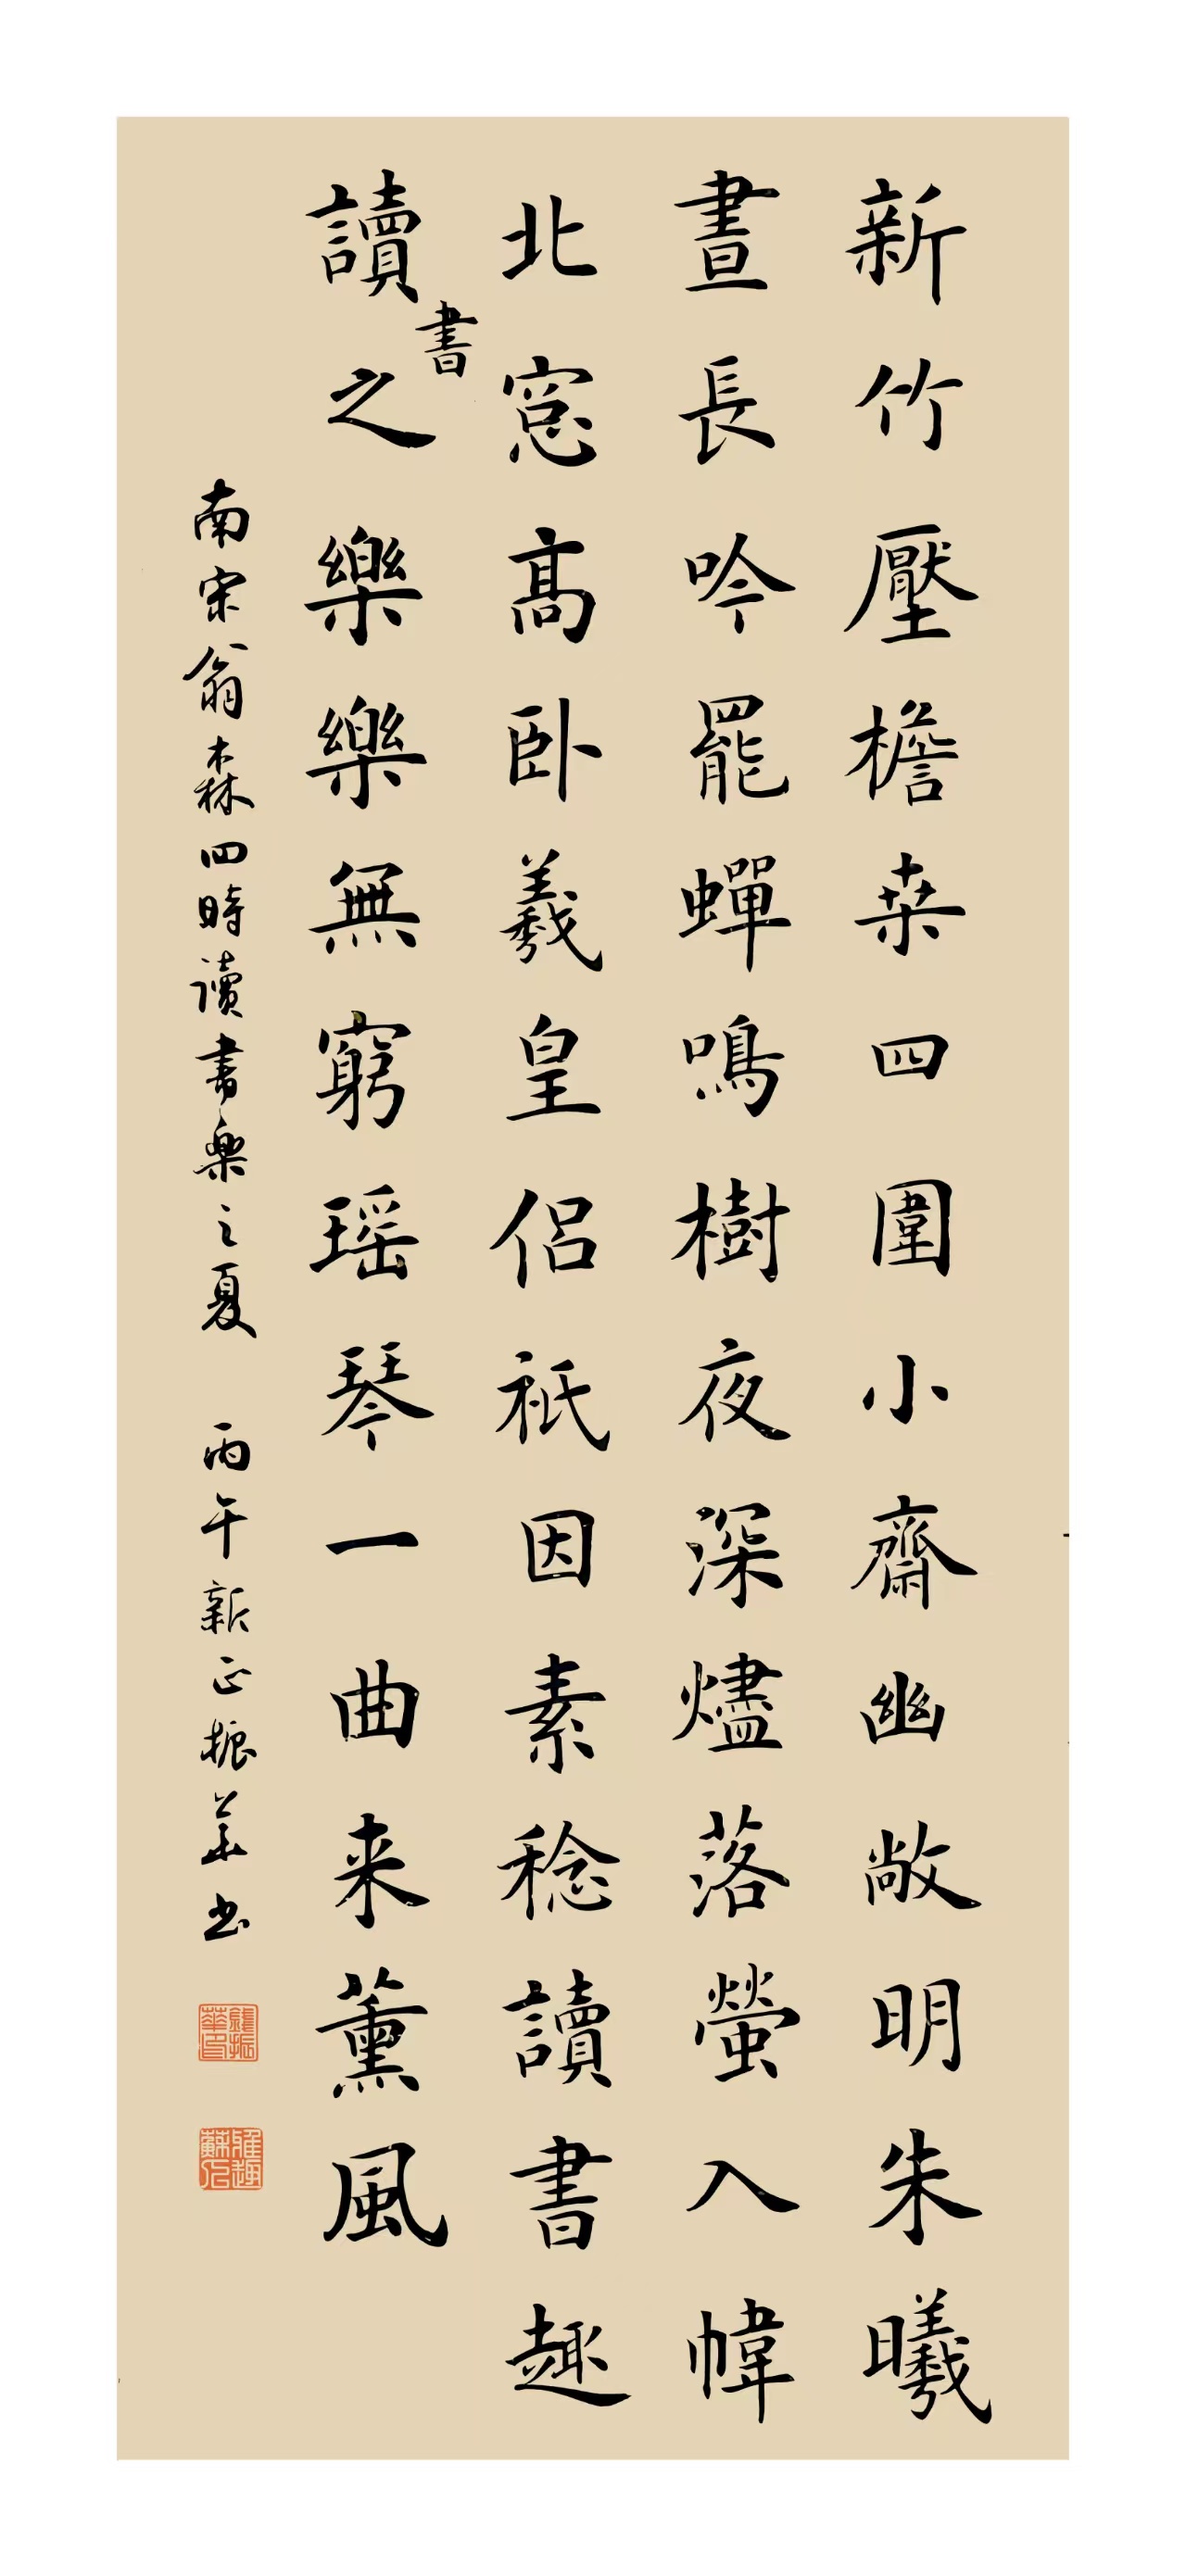 新竹壓檐桒四圍小齋幽敞明朱曦
晝長吟罷蟬鳴樹夜深燼落螢入幃
北窓高卧羲皇侣祇因素稔讀書趣
讀書之樂樂無窮瑶琴一曲来薰風
南宋翁森四時讀書樂之夏 丙午新正振華书